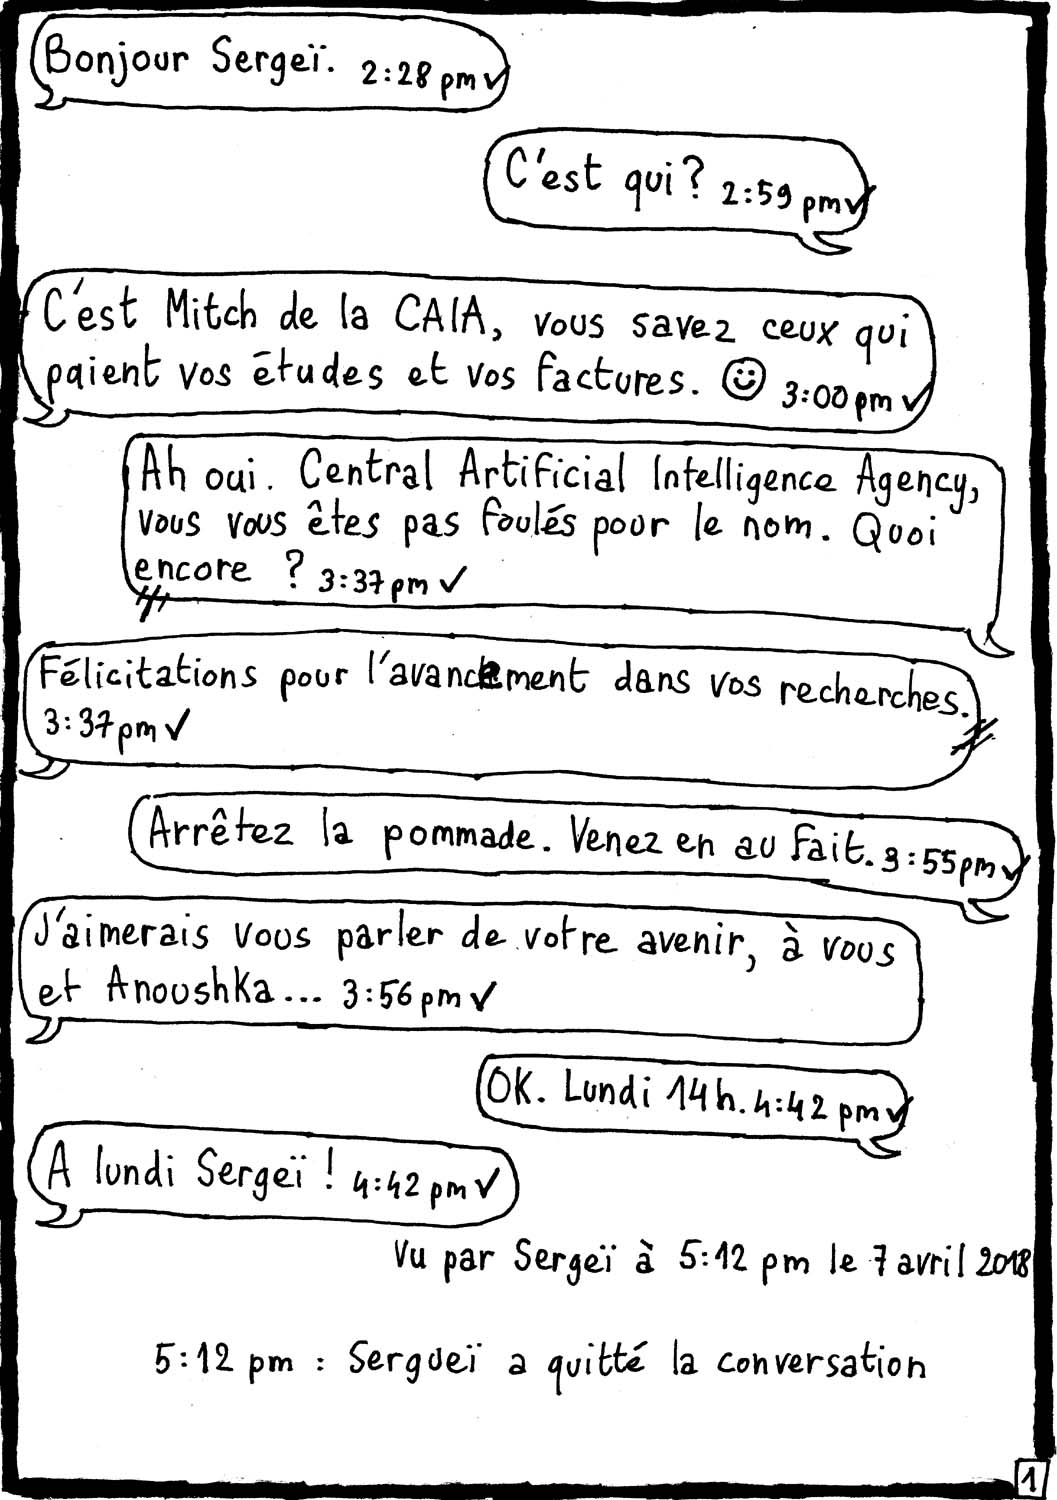 Bonjour Sergeï. 2:28 pm ✓
C'est qui ? 2:59 pm ✓
C'est Mitch de la CAIA, vous savez ceux qui
paient vos études et vos factures. ☺ 3:00 pm ✓
Ah oui. Central Artificial Intelligence Agency,
vous vous êtes pas foulés pour le nom. Quoi
encore ? 3:37 pm ✓
Félicitations pour l'avancement dans vos recherches.
3:37 pm ✓
Arrêtez la pommade. Venez en au fait. 3:55 pm ✓
J'aimerais vous parler de votre avenir, à vous
et Anoushka... 3:56 pm ✓
OK. Lundi 14h. 4:42 pm ✓
A lundi Sergeï ! 4:42 pm ✓
Vu par Sergeï à 5:12 pm le 7 avril 2018
5:12 pm : Sergueï a quitté la conversation
1